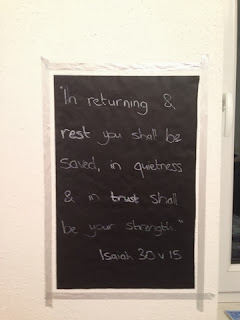 "In returning &
rest you shall be
saved, in quietness
& in trust shall
be your strength."
Isaiah 30 v 15